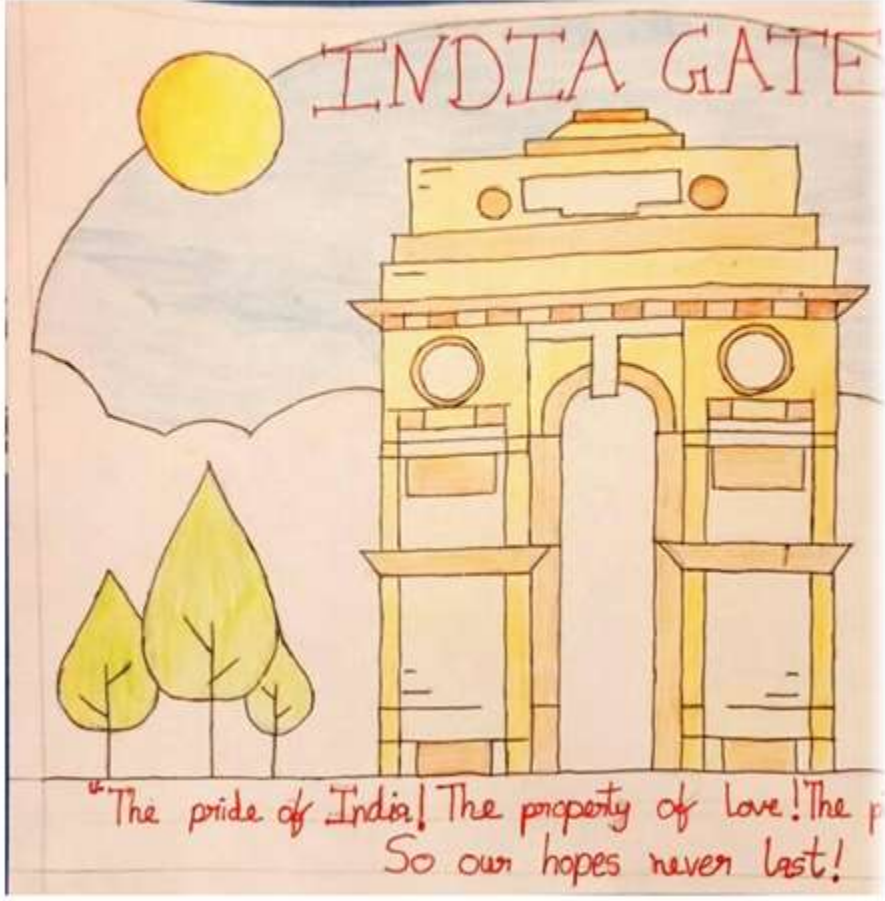 INDIA GATE
"The pride of India! The property of love! The
So our hopes never last!